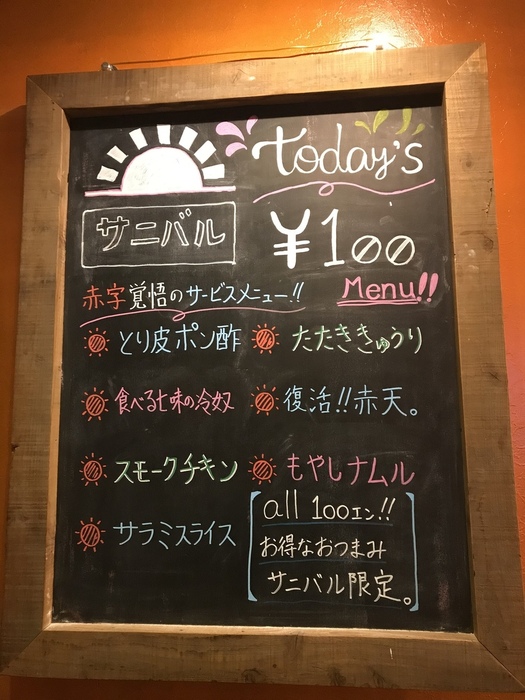 today's
サニバル
¥100
Menu!!
赤字覚悟のサービスメニュー!!
とり皮ポン酢
たたききゅうり
食べる七味の冷奴
復活!!赤天。
スモークチキン
もやしナムル
サラミスライス
all 100エン!!
お得なおつまみ
サニバル限定。